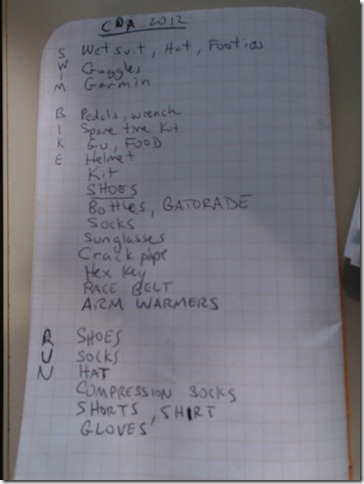 CDA 2012
S Wetsuit, Hat, Footies
W Goggles
I
M Garmin
B Pedals, wrench
I Spare tire kit
K Gu, FOOD
E Helmet
Kit
SHOES
Bottles, GATORADE
Socks
Sunglasses
Crack pipe
Hex Key
RACE BELT
ARM WARMERS
R SHOES
U SOCKS
N HAT
COMPRESSION SOCKS
SHORTS, SHIRT
GLOVES